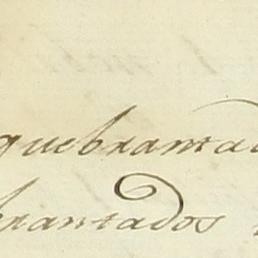 quebrantad
brantados